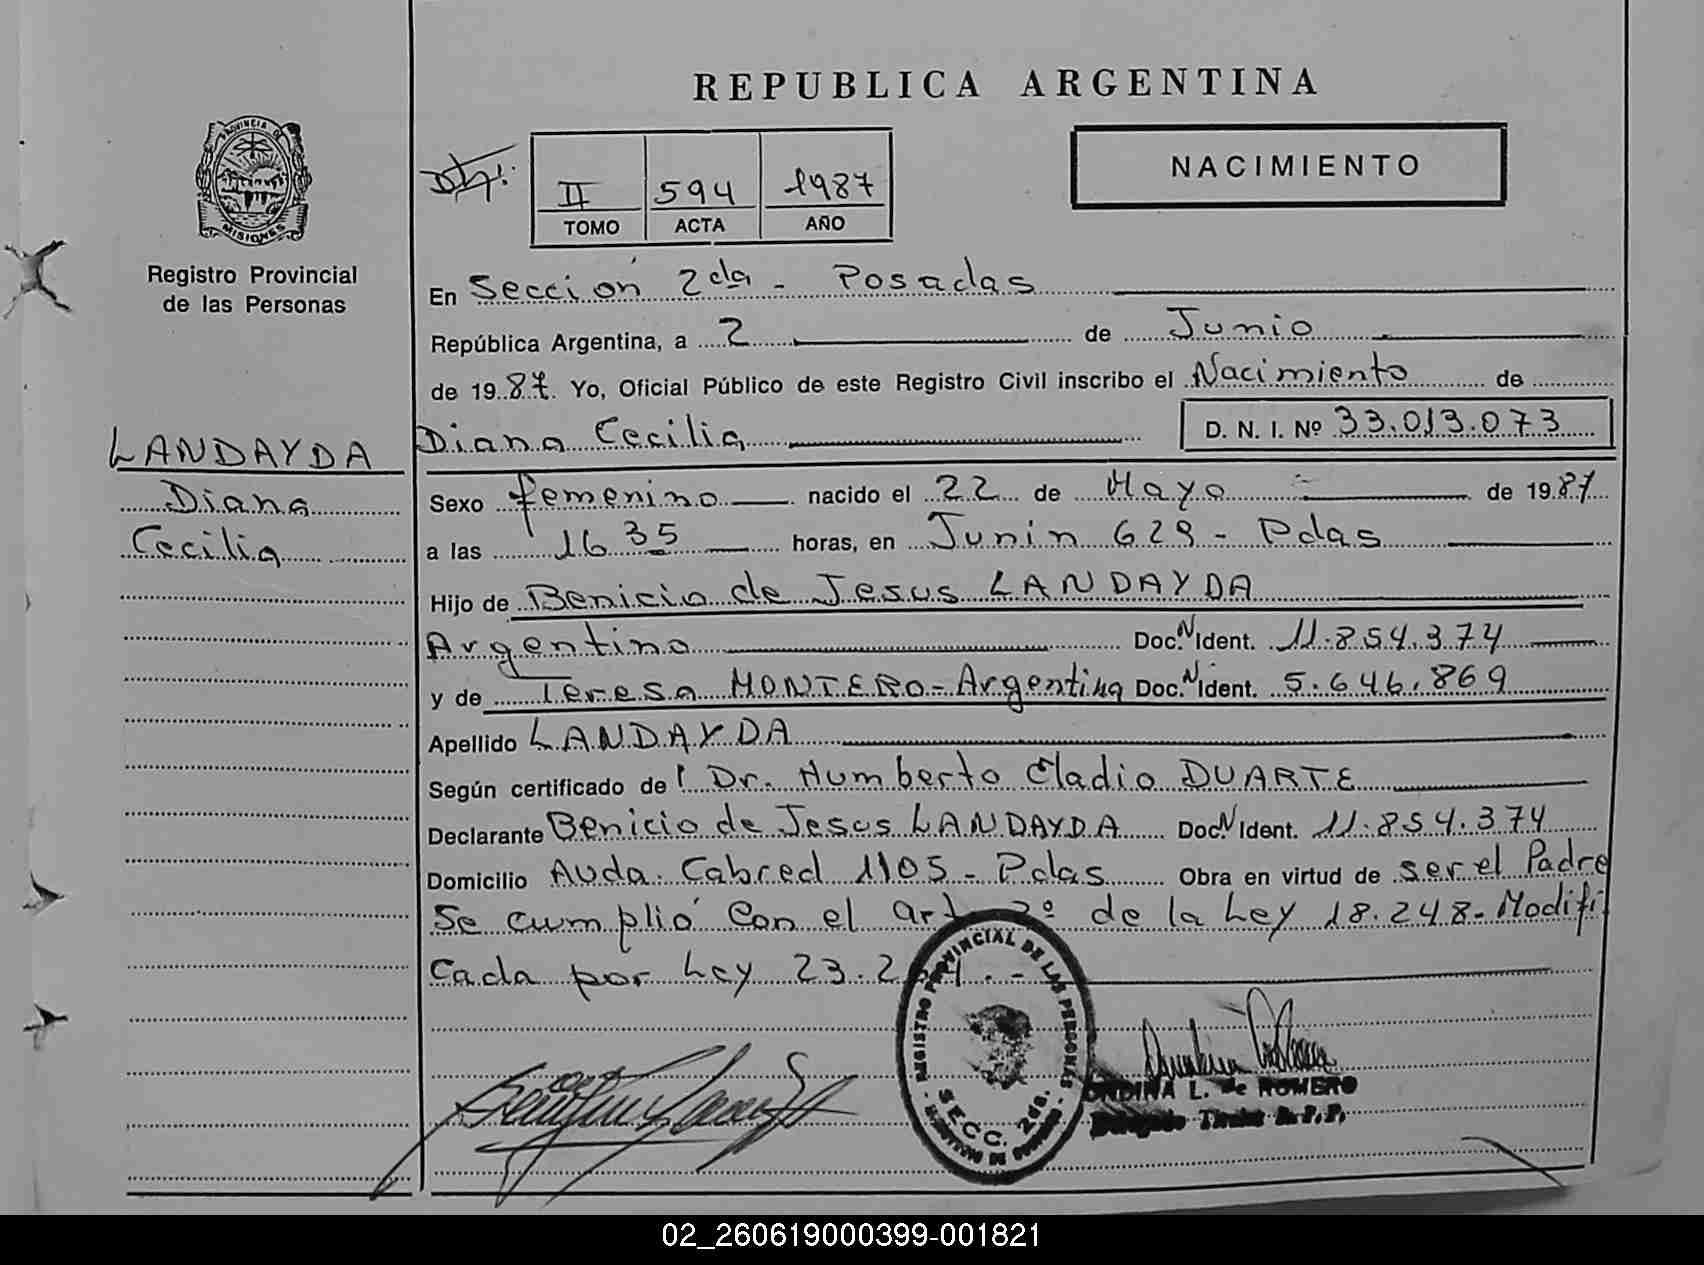 REPUBLICA ARGENTINA
PROVINCIA DE
MISIONES
Registro Provincial
de las Personas
II 594 1987
TOMO ACTA AÑO
NACIMIENTO
En Sección 2da - Posadas
República Argentina, a 2 de Junio
de 1987. Yo, Oficial Público de este Registro Civil inscribo el Nacimiento de
Diana Cecilia D. N. I. Nº 33.013.073
LANDAYDA
Diana
Cecilia
Sexo femenino nacido el 22 de Mayo de 1987
a las 16 35 horas, en Junin 629 - Pdas
Hijo de Benicio de Jesus LANDAYDA
Argentino Doc. N Ident. 11.854.374
y de Teresa MONTERO - Argentina Doc. N Ident. 5.646.869
Apellido LANDAYDA
Según certificado de Dr. Humberto Eladio DUARTE
Declarante Benicio de Jesus LANDAYDA Doc. N Ident. 11.854.374
Domicilio Avda. Cabred 1105 - Pdas Obra en virtud de ser el Padre
Se cumplió con el art. 2º de la Ley 18.248 - Modifi
cada por Ley 23.2
REGISTRO PROVINCIAL DE LAS PERSONAS
SECC. 2da.
ONDINA L. de ROMERO
02_260619000399-001821